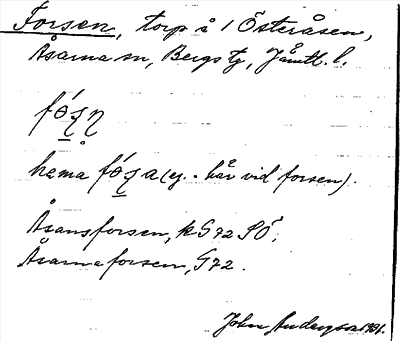 Forsen, torp å 1 Österåsen,
Åsarna sn, Bergs tg, Jämtl. l.
hema
(eg. - här vid forsen).
Åsansforsen, k G 72 SÖ.
Åsarneforsen, G 72.
John Andersson 1931.